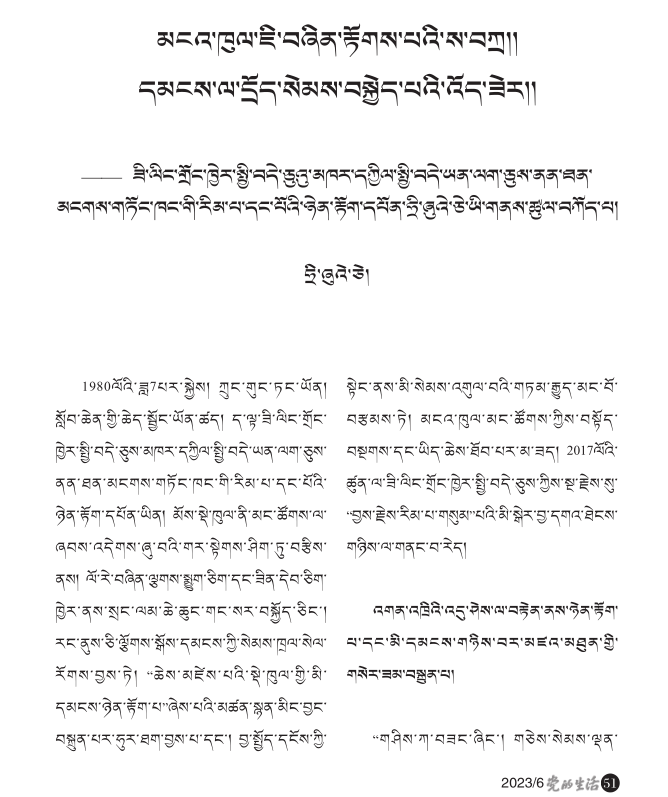 མངའ་ཁུལ་ཇི་བཞིན་རྟོགས་པའི་ས་བཀྲ།།
དམངས་ལ་དྲོད་སེམས་བསྐྱེད་པའི་འོད་ཟེར།།
—— ཟི་ལིང་གྲོང་ཁྱེར་སྤྱི་བདེ་ཅུའུ་མཁར་དཀྱིལ་སྤྱི་བདེ་ཡན་ལག་ཅུས་ནན་ཐན་
མངགས་གཏོང་ཁང་གི་རིམ་པ་དང་པོའི་ཉེན་རྟོག་དཔོན་ཧྲི་ཞུའེ་ཅེ་ཡི་གནས་ཚུལ་བཀོད་པ།
ཧྲི་ཞུའེ་ཅེ།
1980ལོའི་ཟླ7པར་སྐྱེས། ཀྲུང་གུང་ཏང་ཡོན།
སློབ་ཆེན་གྱི་ཆེད་སྦྱོང་ཡོན་ཚད། ད་ལྟ་ཟི་ལིང་གྲོང་
ཁྱེར་སྤྱི་བདེ་ཅུས་མཁར་དཀྱིལ་སྤྱི་བདེ་ཡན་ལག་ཅུས་
ནན་ཐན་མངགས་གཏོང་ཁང་གི་རིམ་པ་དང་པོའི་
ཉེན་རྟོག་དཔོན་ཡིན། མོས་སྡེ་ཁུལ་ནི་མང་ཚོགས་ལ་
ཞབས་འདེགས་ཞུ་བའི་གར་སྟེགས་ཤིག་ཏུ་བརྩིས་
ནས། ལོ་རེ་བཞིན་ལྕགས་སྨྱུག་ཅིག་དང་ཟིན་དེབ་ཅིག་
ཁྱེར་ནས་སྲང་ལམ་ཆེ་ཆུང་གང་སར་བསྐྱོད་ཅིང་།
རང་ནུས་ཅི་ལྕོགས་སྒོས་དམངས་ཀྱི་སེམས་ཁྲལ་སེལ་
རོགས་བྱས་ཏེ། “ཆེས་མཛེས་པའི་སྡེ་ཁུལ་གྱི་མི་
དམངས་ཉེན་རྟོག་པ”ཞེས་པའི་མཚན་སྙན་མིང་བྱང་
བསྐྲུན་པར་ཧུར་ཐག་བྱས་པ་དང་། བྱ་སྤྱོད་དངོས་ཀྱི་
སྟེང་ནས་མི་སེམས་འགུལ་བའི་གཏམ་རྒྱུད་མང་པོ་
བརྩམས་ཏེ། མངའ་ཁུལ་མང་ཚོགས་ཀྱིས་བསྟོད་
བསྔགས་དང་ཡིད་ཆེས་ཐོབ་པར་མ་ཟད། 2017ལོའི་
ཚུན་ལ་ཟི་ལིང་གྲོང་ཁྱེར་སྤྱི་བདེ་ཅུས་ཀྱིས་སྔ་རྗེས་སུ་
“བྱས་རྗེས་རིམ་པ་གསུམ”པའི་མི་སྒེར་བྱ་དགའ་ཐེངས་
གཉིས་ལ་གནང་བ་རེད།
འགན་འཁྲིའི་འདུ་ཤེས་ལ་བརྟེན་ནས་ཉེན་རྟོག་
པ་དང་མི་དམངས་གཉིས་བར་མཛའ་མཐུན་གྱི་
གསེར་ཟམ་བསྐྲུན་པ།
“གཤིས་ཀ་བཟང་ཞིང་། གཅེས་སེམས་ལྡན་
2023/6 党的生活 51